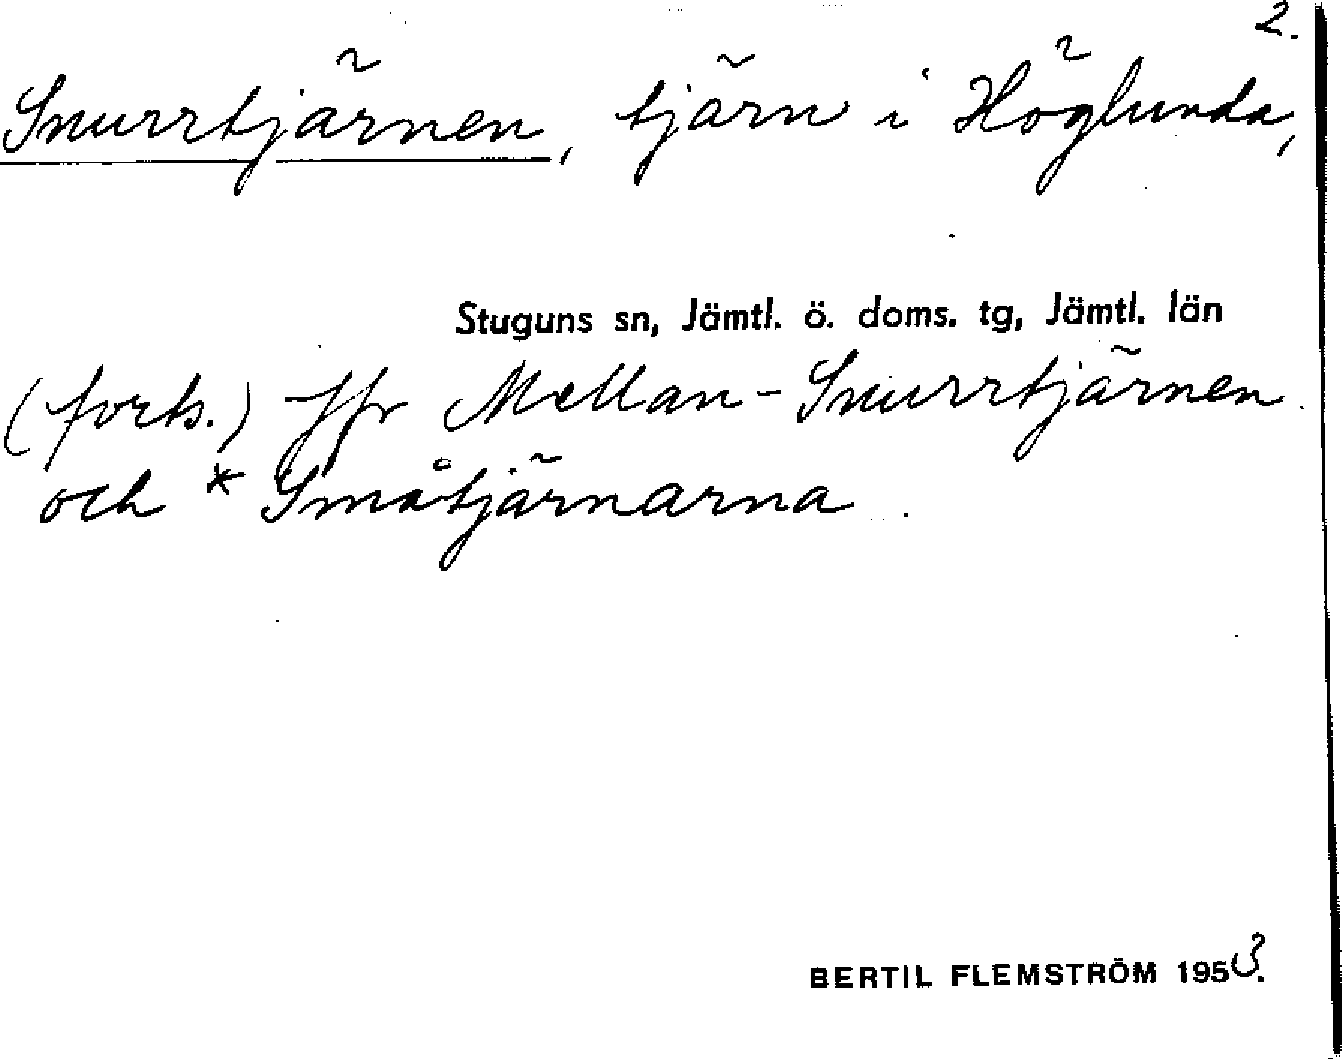 2.
Snurrtjärnen, tjärn i Höglunda,
Stuguns sn, Jämtl. ö. doms. tg, Jämtl. län
(forts.) Jfr Mellan-Snurrtjärnen
och * Småtjärnarna.
BERTIL FLEMSTRÖM 1953.